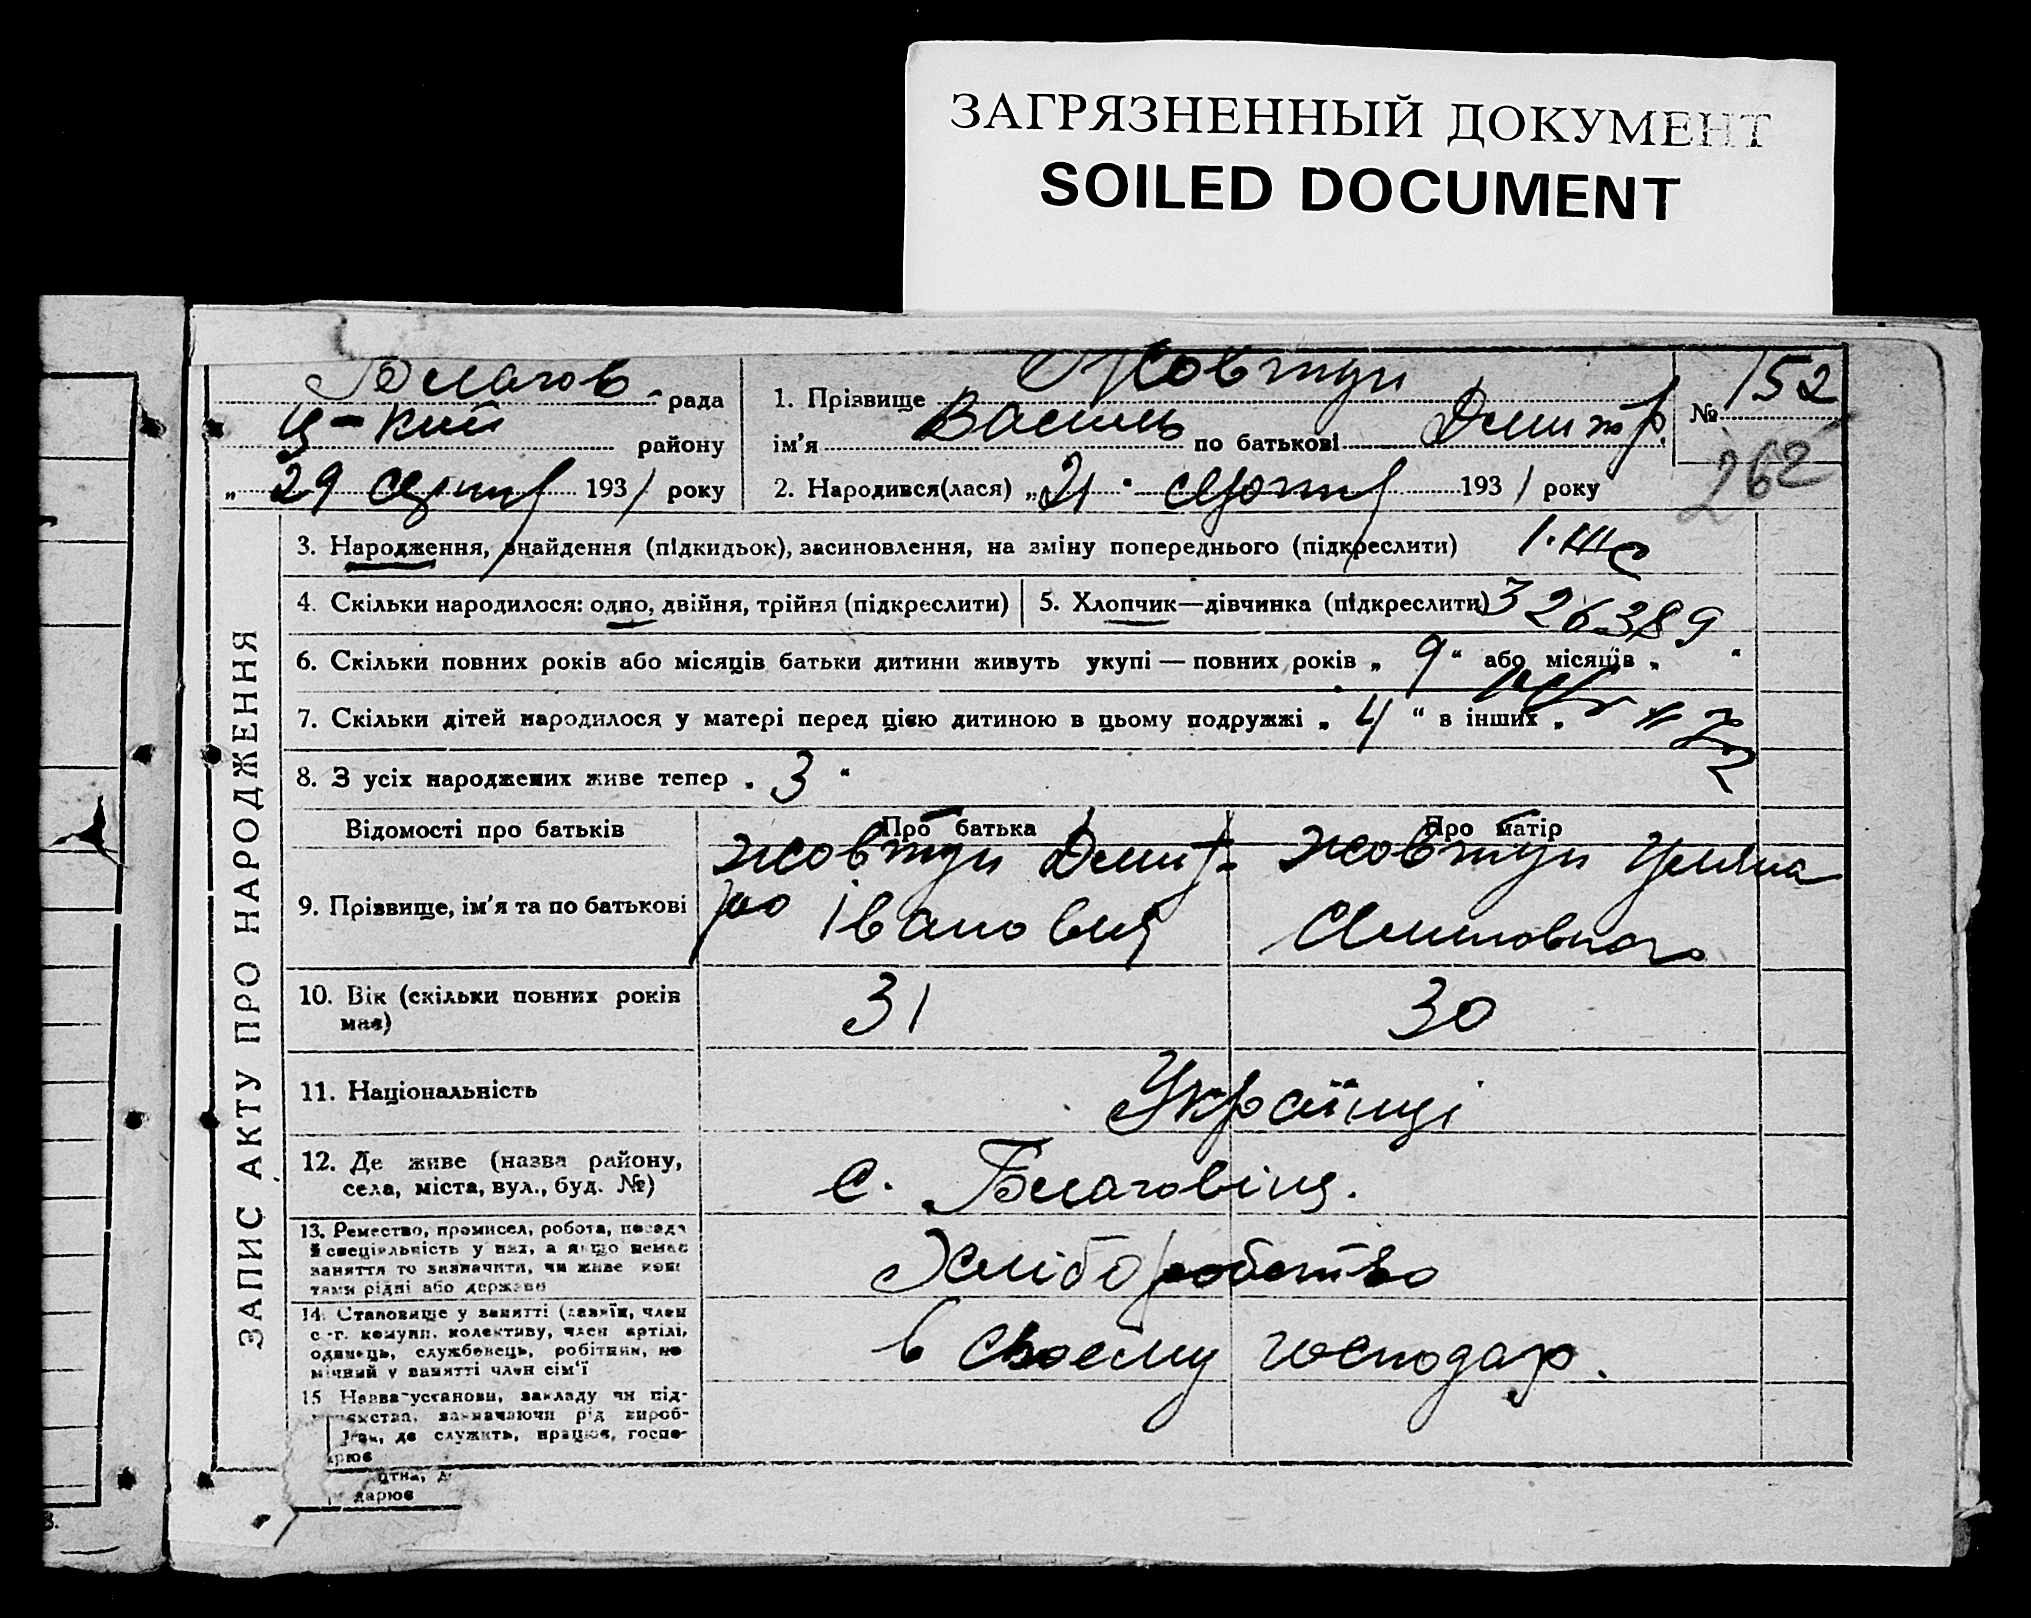 ЗАГРЯЗНЕННЫЙ ДОКУМЕНТ
SOILED DOCUMENT
Благов. рада
Ц-кий району
„ 29 серпня 1931 року
1. Прізвище Жовтун
ім'я Василь по батькові Дмитр.
2. Народився(лася) „ 21 " серпня 1931 року
№ 152
262
ЗАПИС АКТУ ПРО НАРОДЖЕННЯ
3. Народження, знайдення (підкидьок), засиновлення, на зміну попереднього (підкреслити)
4. Скільки народилося: одно, двійня, трійня (підкреслити)
5. Хлопчик—дівчинка (підкреслити)
326389
6. Скільки повних років або місяців батьки дитини живуть укупі — повних років „ 9 " або місяців „ "
7. Скільки дітей народилося у матері перед цією дитиною в цьому подружжі „ 4 " в інших „
8. З усіх народжених живе тепер „ 3 "
Відомості про батьків
Про батька
Про матір
9. Прізвище, ім'я та по батькові
Жовтун Дмит-
ро Іванович
Жовтун Уляна
10. Вік (скільки повних років
має)
31
30
11. Національність
Українці
12. Де живе (назва району,
села, міста, вул., буд. №)
с. Благовіщ.
13. Ремество, промисел, робота, посада
й спеціяльність у них, а якщо немає
заняття то зазначити, чи живе кош
тами рідні або держави
Хліборобство
14. Становище у занятті (хазяїн, член
с.-г. комуни, колективу, член артілі,
одинець, службовець, робітник, по
мічний у занятті член сім'ї
в своєму господар.
15 Назва установи, закладу чи під-
зазначаючи рід вироб-
де служить, працює, госпо-
дарює